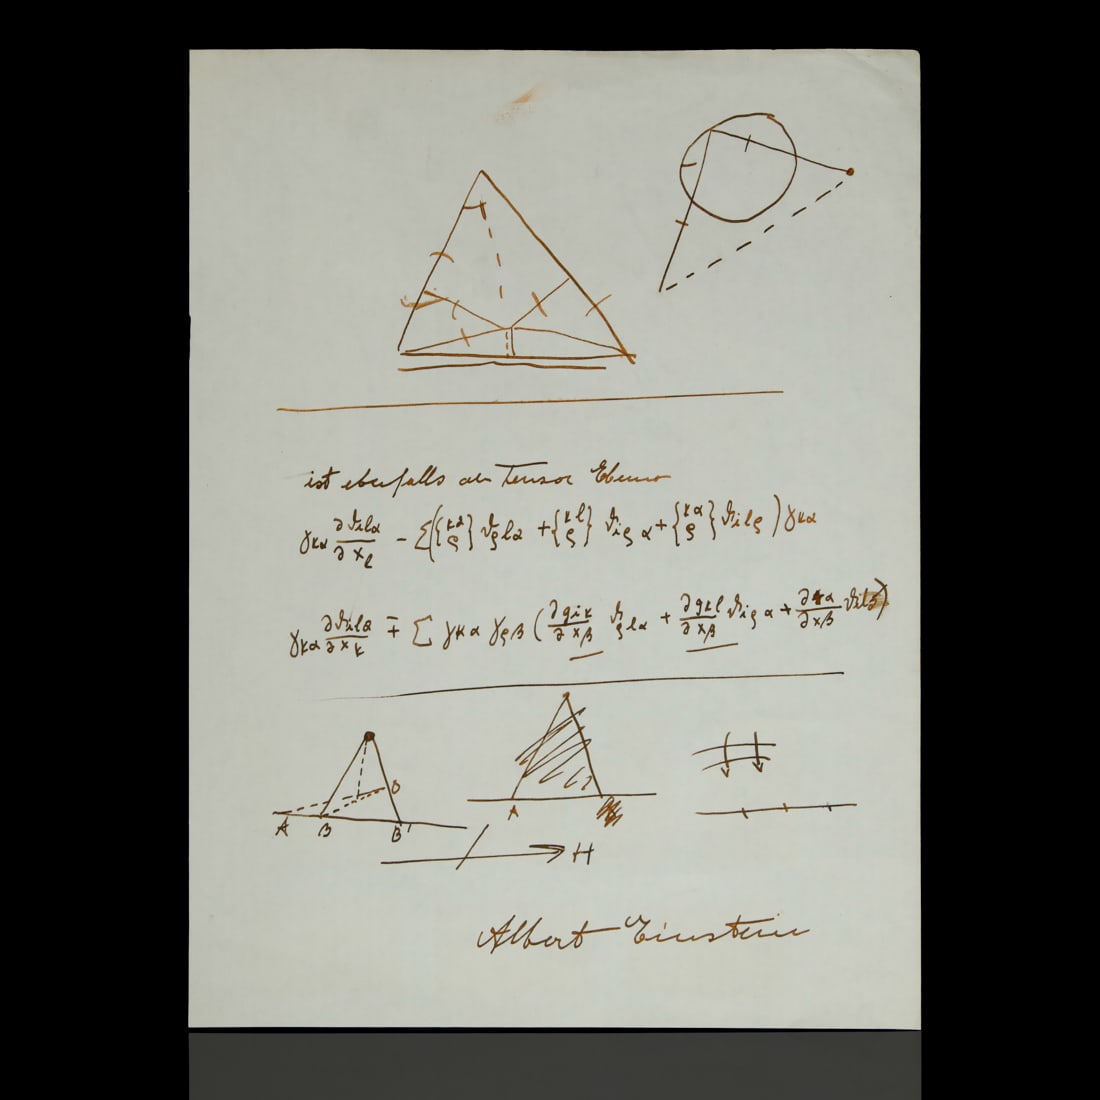 ist ebenfalls ein Tensor Ebenso
γκα ∂ϑilα/∂xl − Σ({κλ/ρ} ϑρlα + {κl/ρ} ϑiρα + {κα/ρ} ϑilρ) γκα
γκα ∂ϑilα/∂xκ ∓ Σ γκα γρβ (∂giκ/∂xβ ϑρlα + ∂gκl/∂xβ ϑiρα + ∂κα/∂xβ
O
A B B' A
H
Albert Einstein